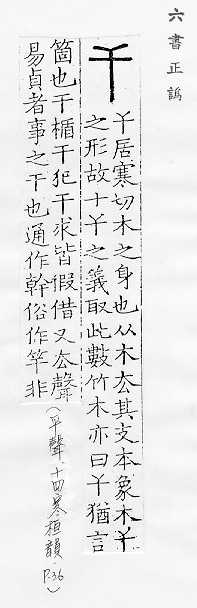 六書正譌
千
丫居寒切木之身也从木厺其支本象木丫
之形故十丫之義取此數竹木亦曰丫猶言
箇也干楯干犯干求皆假借又厺聲
易貞者事之干也通作幹俗作竿非
(平聲、十四寒桓韻，P.36)